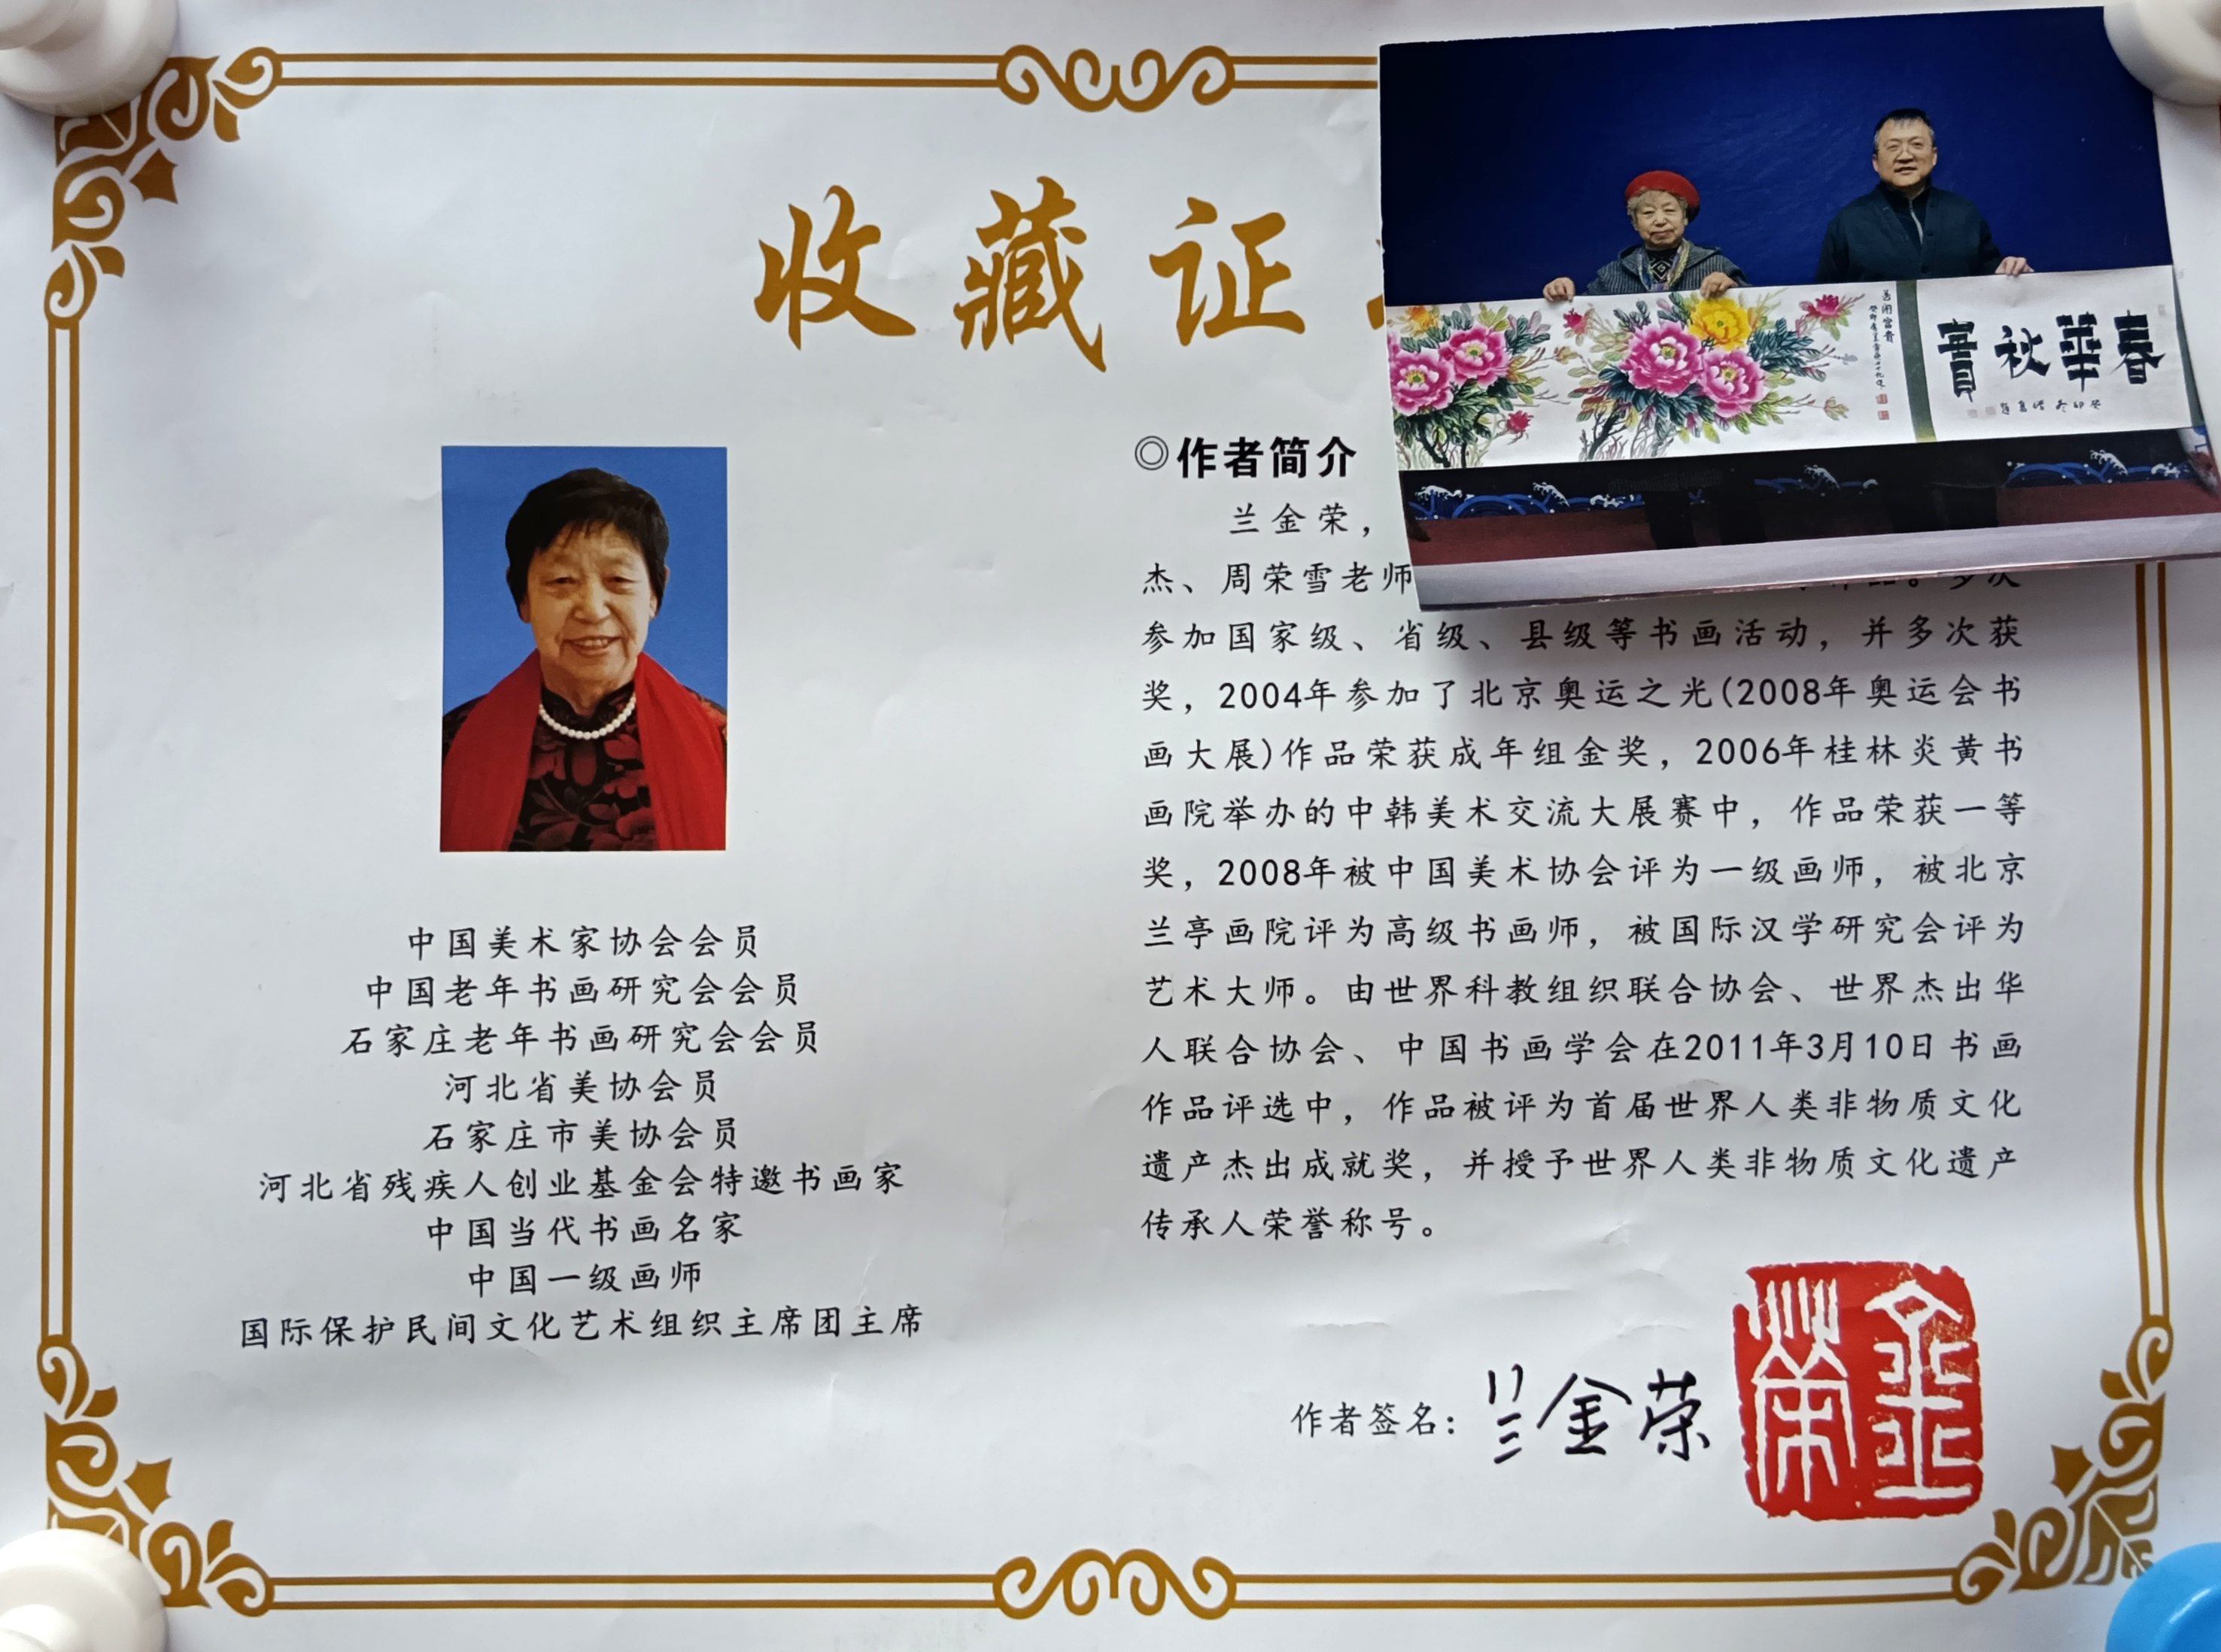 收藏证
中国美术家协会会员
中国老年书画研究会会员
石家庄老年书画研究会会员
河北省美协会员
石家庄市美协会员
河北省残疾人创业基金会特邀书画家
中国当代书画名家
中国一级画师
国际保护民间文化艺术组织主席团主席
◎作者简介
兰金荣，
杰、周荣雪老师
参加国家级、省级、县级等书画活动，并多次获
奖，2004年参加了北京奥运之光(2008年奥运会书
画大展)作品荣获成年组金奖，2006年桂林炎黄书
画院举办的中韩美术交流大展赛中，作品荣获一等
奖，2008年被中国美术协会评为一级画师，被北京
兰亭画院评为高级书画师，被国际汉学研究会评为
艺术大师。由世界科教组织联合协会、世界杰出华
人联合协会、中国书画学会在2011年3月10日书画
作品评选中，作品被评为首届世界人类非物质文化
遗产杰出成就奖，并授予世界人类非物质文化遗产
传承人荣誉称号。
作者签名：兰金荣
金荣
春華秋實